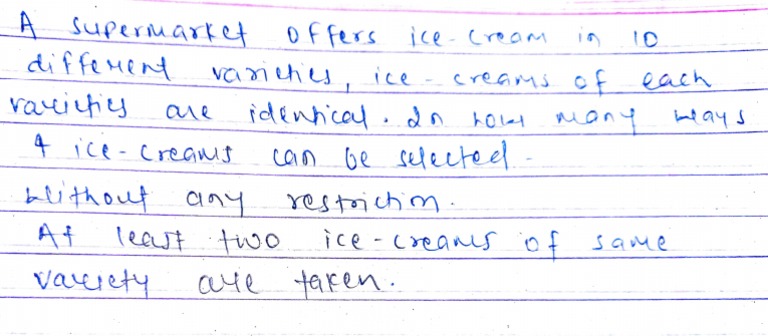 A supermarket offers ice-cream in 10
different varieties, ice-creams of each
varieties are identical. In how many ways
4 ice-creams can be selected.
Without any restriction.
At least two ice-creams of same
variety are taken.